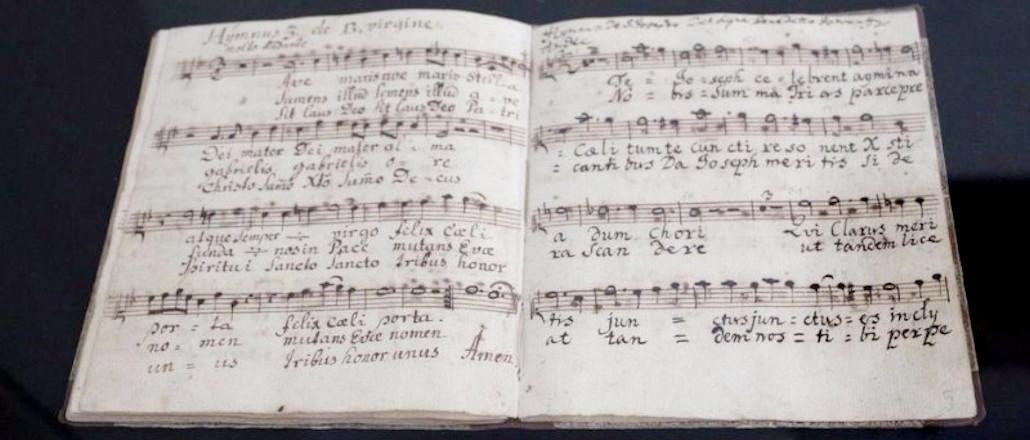 Hymnus 3. de B. virgine.
Ave maris ave maris Stella
Sumens illud Sumens illud a = ve
Sit Laus Deo Sit Laus Deo Pa = tri
Dei mater Dei mater al = ma
gabrielis gabrielis o = re
Christo Sumo Xto Sumo De = cus
atque Semper virgo felix Cœli
funda nos in Pace mutans Evæ
Spiritui Sancto Sancto Tribus honor
por = ta felix cœli porta.
no = men mutans Evæ nomen
un = us Tribus honor unus Amen
Te = Jo = seph ce = lebrent agmina
No = bis = Sum ma Tri as parcepre
= Cæli tum te cun cti re so nent X sti
= canti bus Da Joseph meri tis Si de
a dum Chori Qvi Clarus meri
ra Scan dere ut tandem lice
tis jun = ctus jun = ctus = es incly
at tan = dem nos = ti = bi perpe
5